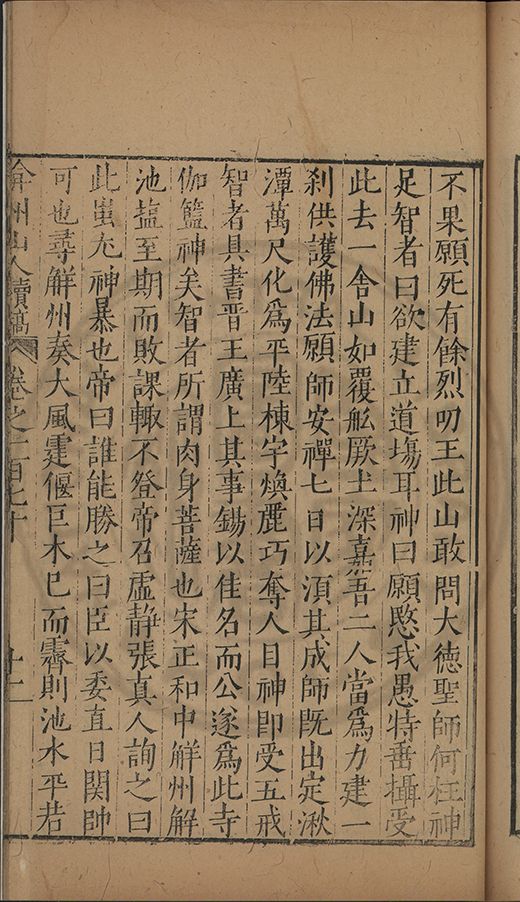 不果願死有餘烈叨王此山敢問大德聖師何枉神
足智者曰欲建立道塲耳神曰願愍我愚特垂攝受
此去一舍山如覆舩厥土深嘉吾二人當爲力建一
刹供護佛法願師安禪七日以須其成師旣出定湫
潭萬尺化爲平陸棟宇煥麗巧奪人目神卽受五戒
智者具書晋王廣上其事錫以佳名而公遂爲此寺
伽籃神矣智者所謂肉身菩薩也宋正和中解州解
池鹽至期而敗課輙不登帝召虛靜張真人詢之曰
此蚩尤神暴也帝曰誰能勝之曰臣以委直日関帥
可也尋解州奏大風霆偃巨木已而霽則池水平若
弇州山人續稿 卷之二百七十 十二